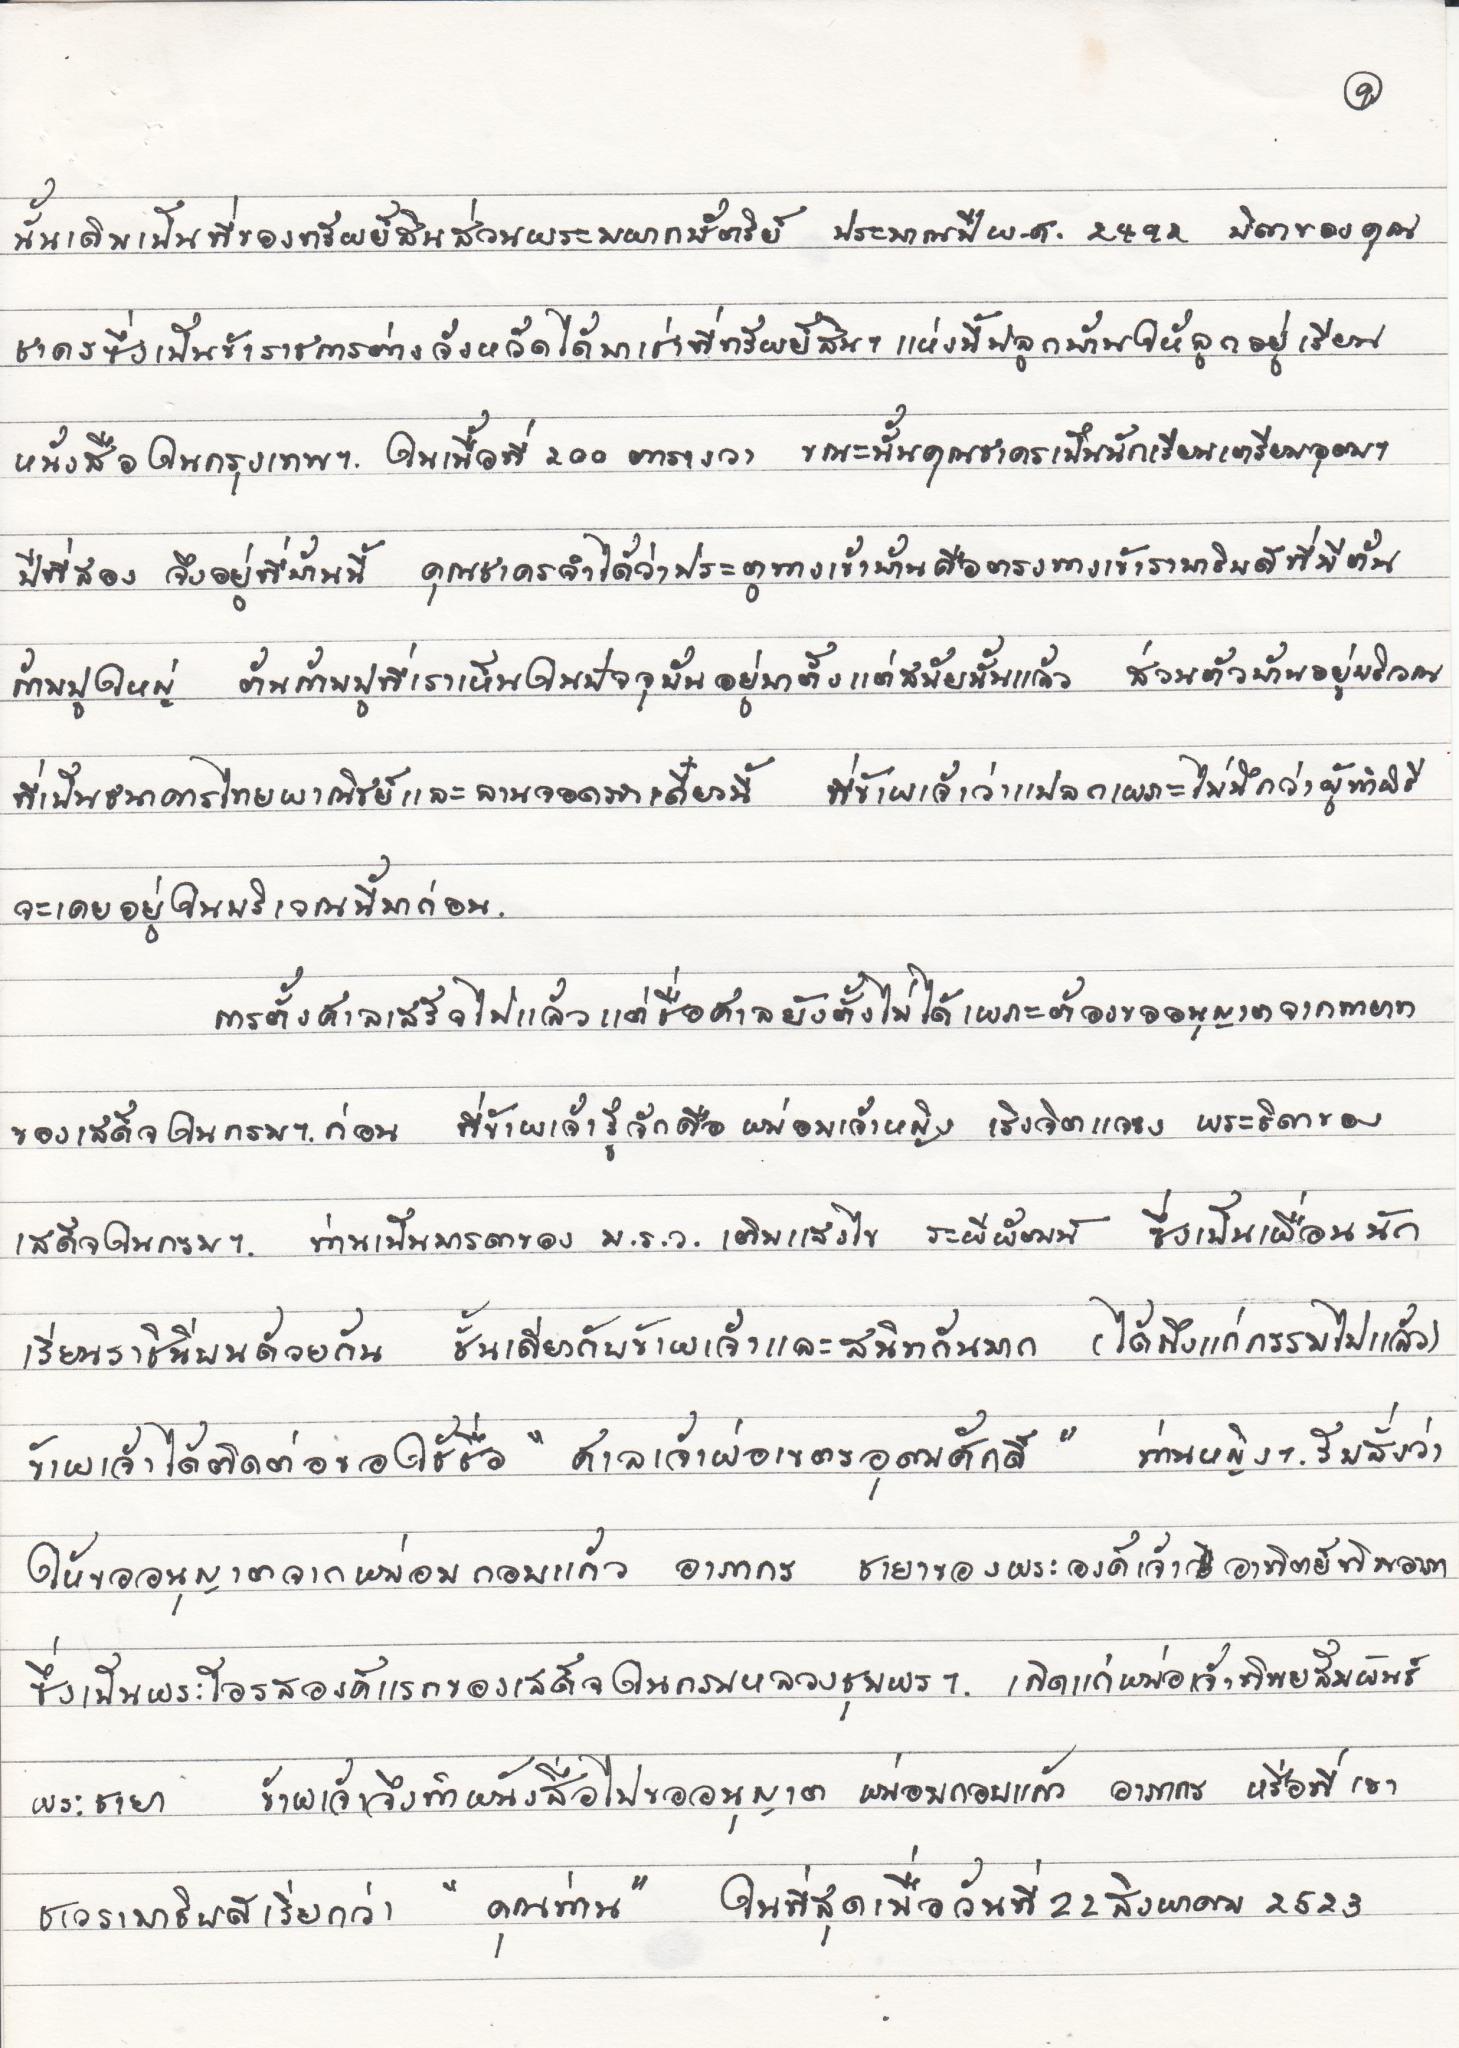 ๑
นั้นเดิมเป็นที่ของทรัพย์สินส่วนพระมหากษัตริย์ ประมาณปีพ.ศ. 2492 บิดาของคุณ
ชาครซึ่งเป็นข้าราชการต่างจังหวัดได้มาเช่าที่ทรัพย์สินฯ แห่งนี้ปลูกบ้านให้ลูกอยู่เรียน
หนังสือในกรุงเทพฯ. ในเนื้อที่ 200 ตารางวา ขณะนั้นคุณชาครเป็นนักเรียนเตรียมอุดมฯ
ปีที่สอง จึงอยู่ที่บ้านนี้ คุณชาครจำได้ว่าประตูทางเข้าบ้านคือตรงทางเข้ารามาธิบดีที่มีต้น
ก้ามปูใหญ่ ต้นก้ามปูที่เราเห็นในปัจจุบันอยู่มาตั้งแต่สมัยนั้นแล้ว ส่วนตัวบ้านอยู่บริเวณ
ที่เป็นธนาคารไทยพาณิชย์และลานจอดรถเดี๋ยวนี้ ที่ข้าพเจ้าว่าแปลกเพราะไม่นึกว่าผู้ทำพิธี
จะเคยอยู่ในบริเวณนี้มาก่อน.
การตั้งศาลเสร็จไปแล้วแต่ชื่อศาลยังตั้งไม่ได้เพราะต้องขออนุญาตจากทายาท
ของเสด็จในกรมฯ. ก่อน ที่ข้าพเจ้ารู้จักคือ หม่อมเจ้าหญิง เริงจิตแจรง พระธิดาของ
เสด็จในกรมฯ. ท่านเป็นมารดาของ ม.ร.ว. เติมแสงไข รพีพัฒน์ ซึ่งเป็นเพื่อนนัก
เรียนราชินีบนด้วยกัน ชั้นเดียวกับข้าพเจ้าและสนิทกันมาก (ได้ถึงแก่กรรมไปแล้ว)
ข้าพเจ้าได้ติดต่อขอใช้ชื่อ "ศาลเจ้าพ่อเขตรอุดมศักดิ์" ท่านหญิงฯ. รับสั่งว่า
ให้ขออนุญาตจากหม่อมกอบแก้ว อาภากร ชายาของพระองค์เจ้าอาทิตย์ทิพอาภา
ซึ่งเป็นพระโอรสองค์แรกของเสด็จในกรมหลวงชุมพรฯ. เกิดแก่หม่อเจ้าทิพยสัมพันธ์
พระชายา ข้าพเจ้าจึงทำหนังสือไปขออนุญาต หม่อมกอบแก้ว อาภากร หรือที่เขา
ชาวรามาธิบดีเรียกว่า "คุณท่าน" ในที่สุดเมื่อวันที่ 22 สิงหาคม 2523